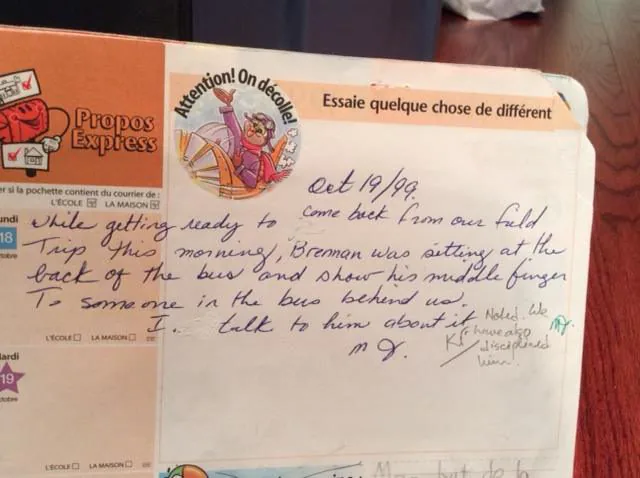 Attention! On décolle!
Essaie quelque chose de différent
Propos
Express
er si la pochette contient du courrier de :
L'ÉCOLE LA MAISON
undi
18
octobre
Oct 19/99.
While getting ready to come back from our field
Trip this morning, Brennan was sitting at the
back of the bus and show his middle finger
To someone in the bus behind us.
I. talk to him about it
m J.
Noted. We
have also
disciplined
him.
L'ÉCOLE LA MAISON
lardi
19
octobre
L'ÉCOLE LA MAISON